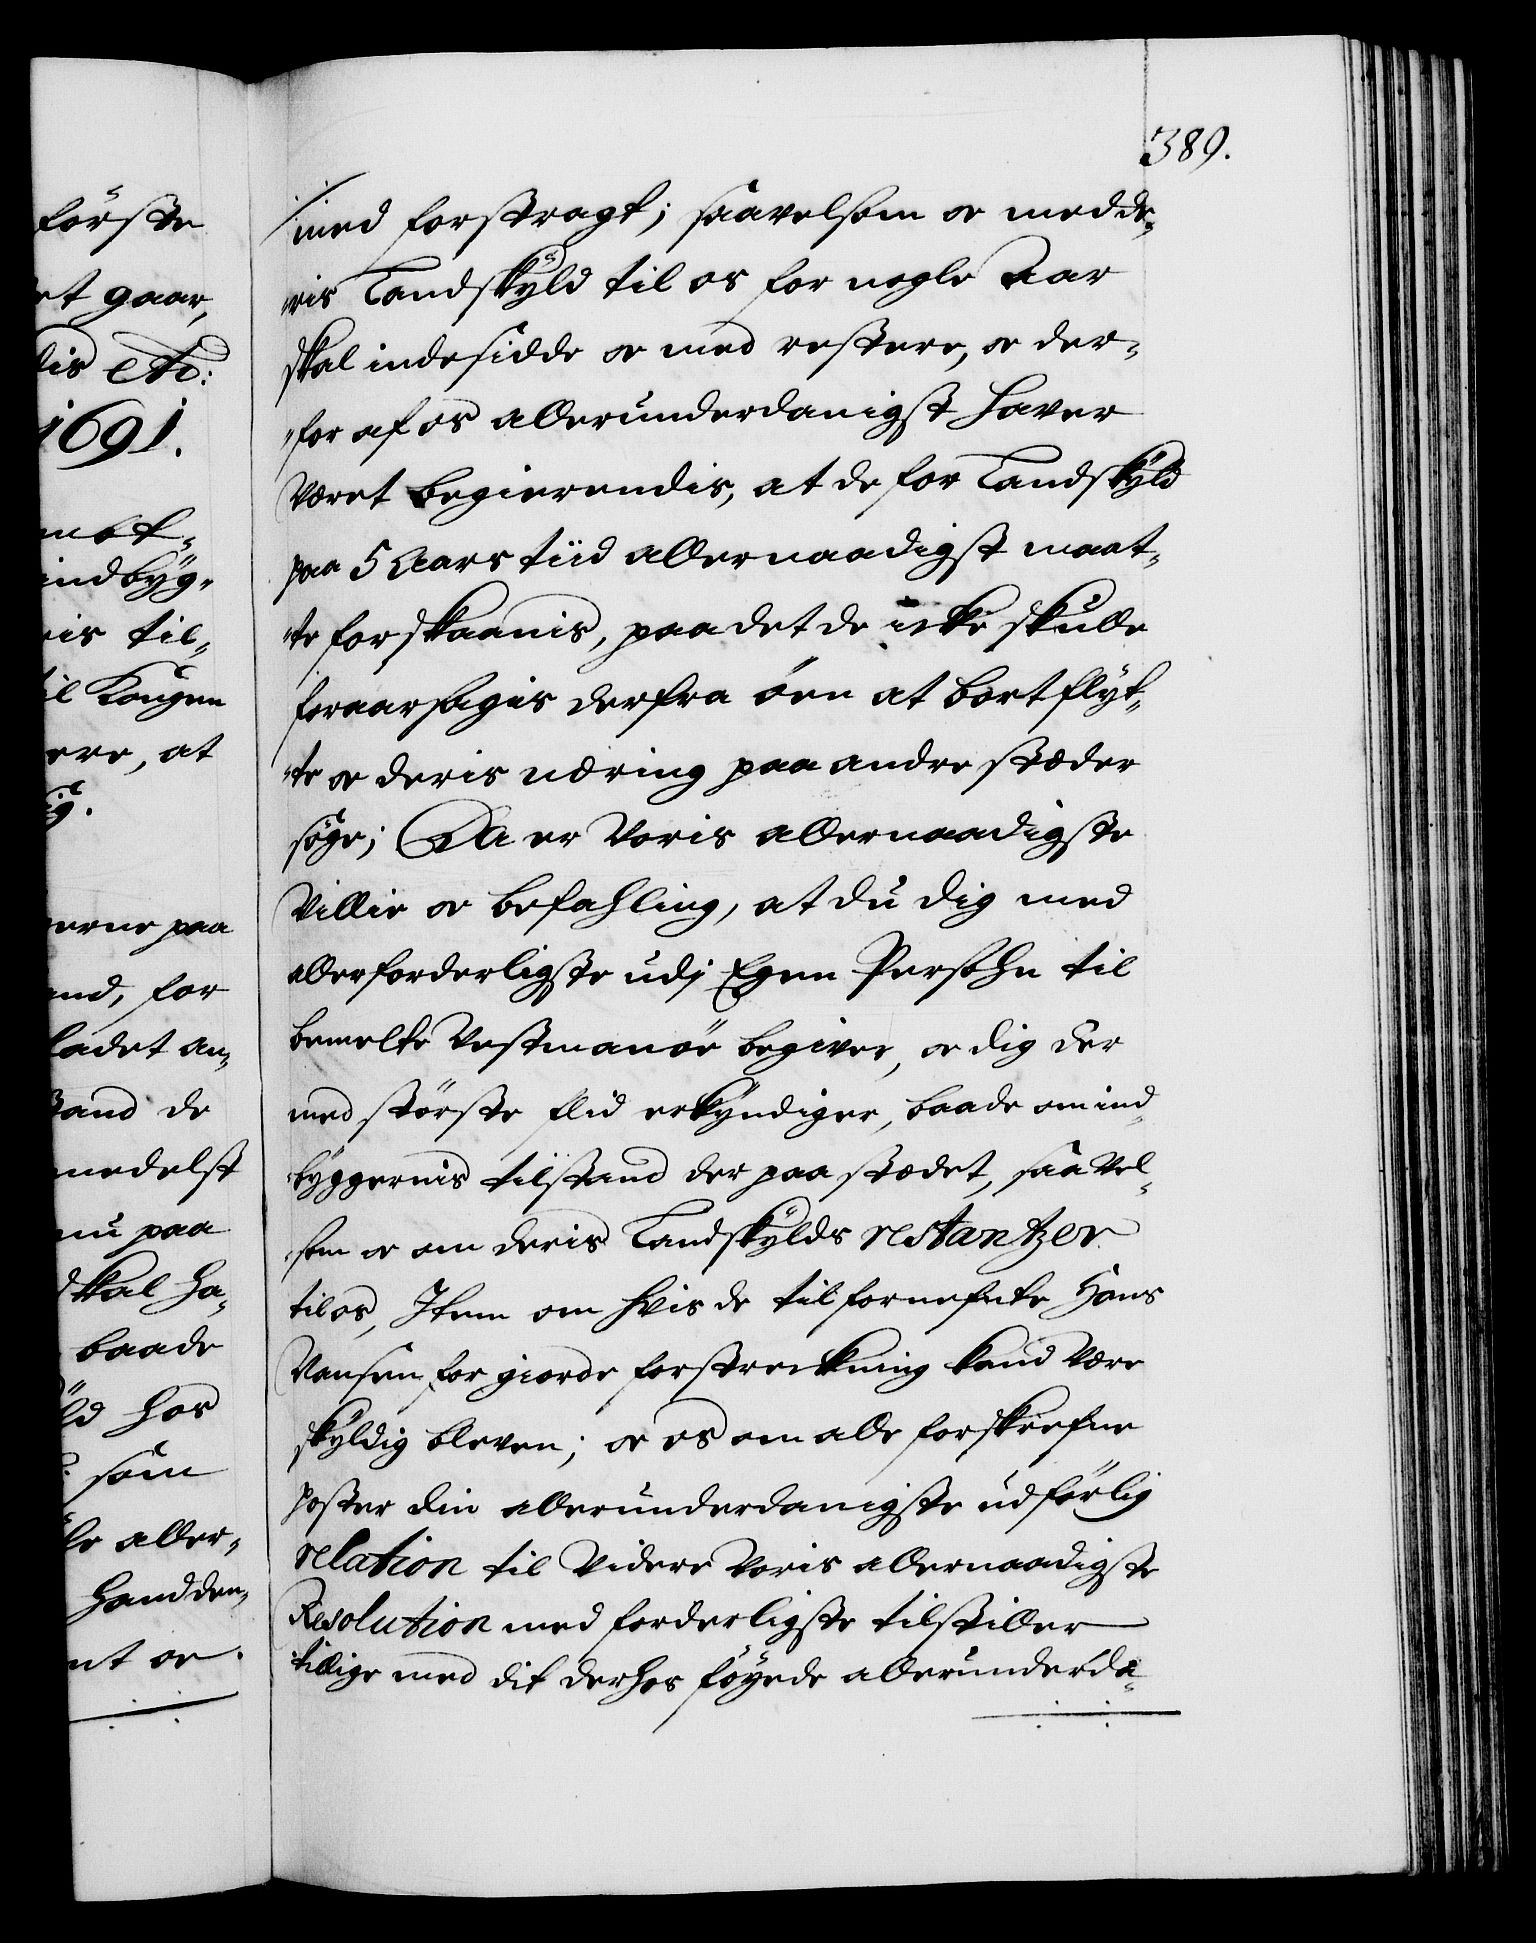 389.
første
et gaar,
lis etc:
1691.
indbyg-
ris til-
il Kongen
ere, at
ig.
erne paa
and, for
ladet an-
stand de
medelst
nu paa
skal ha-
baade
hos
som
aller-
hand den-
nt oc
med forstragt; saavelsom oc med de-
ris Landskyld til os for nogle Aar
skal indesidde oc med restere, oc der-
for af os allerunderdanigst haver
været begierendis, at de for Landskyld
paa 5 Aars tiid allernaadigst maat-
te forskaanis, paa det de icke skulle
foraarsagis derfra öen at bortflyt-
te oc deris næring paa andre stæder
søge; Da er Voris allernaadigste
Villie oc befahling, at du dig med
allerforderligste udj Egen Persohn til
bemelte Vestmanöe begiver, oc dig der
med störste flid erkyndiger, baade om ind-
byggernis tilstand der paa stædet, saavel-
som oc om deris Landskylds restantzer
til os, Item om hvis de til fornefnte Hans
Nansen for giorde forstreckning kand være
skyldig bleven; oc os om alle forskrefne
poster din allerunderdanigste udförlig
relation til videre Voris allernaadigste
Resolution med forderligste tilstiller
tillige med dit derhos föyede allerunderda-